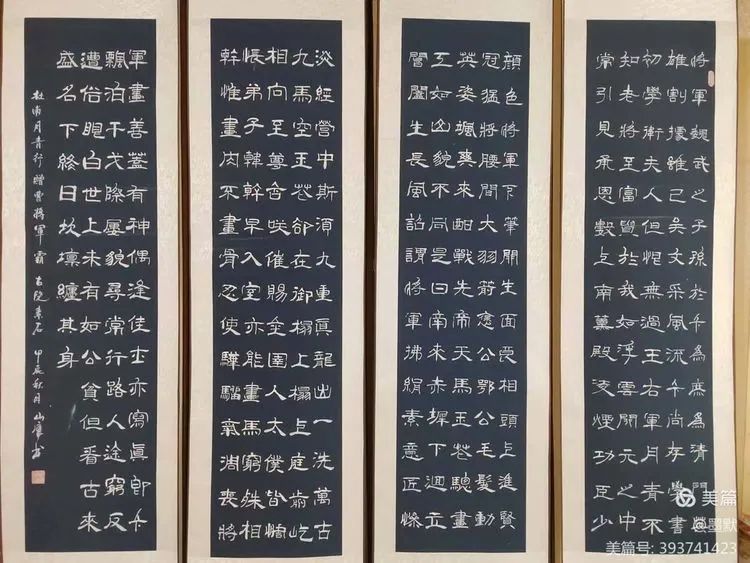 將軍魏武之子孫於今為庶為清門
雄割據雖已矣文采風流今尚存學書
初學衛夫人但恨無過王右軍丹青不
知老將至富貴於我如浮雲開元之中
常引見承恩數上南薰殿凌煙功臣少
顏色將軍下筆開生面良相頭上進賢
冠猛將腰間大羽箭褒公鄂公毛髮動
英姿颯爽來酣戰先帝天馬玉花驄畫
工如山貌不同是日牽來赤墀下迴立
閶闔生長風詔謂將軍拂絹素意匠慘
淡經營中斯須九重真龍出一洗萬古
凡馬空玉花卻在御榻上榻上庭前屹
相向至尊含咲催賜金圉人太僕皆惆
悵弟子韓幹早入室亦能畫馬窮殊相
幹惟畫肉不畫骨忍使驊騮氣凋喪將
軍畫善蓋有神偶逢佳士亦寫真即今
飄泊干戈際屢貌尋常行路人途窮反
遭俗眼白世上未有如公貧但看古來
盛名下終日坎壈纏其身
杜甫丹青引贈曹將軍霸 甲辰秋月
美篇
墨默
美篇号: 393741423